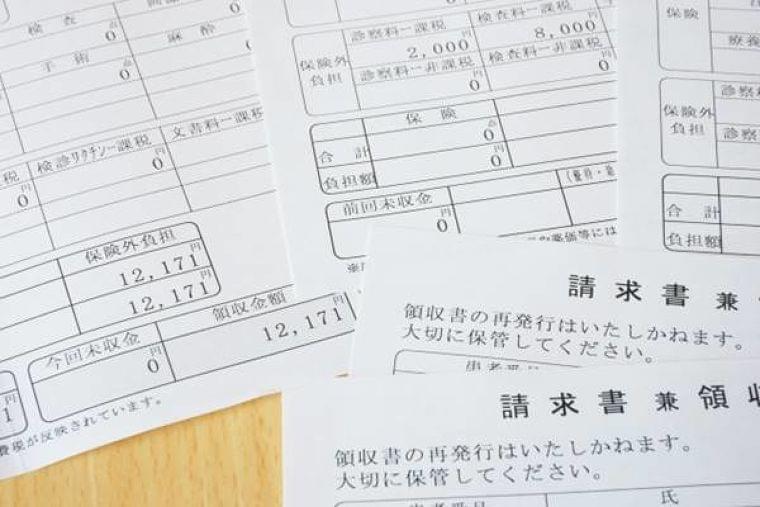 検査
0
麻酔
手術
0
0
検診ワクチンー課税
文書料ー課税
円
0
円
0
保険外負担
円
12,171
円
12,171
今回未収金
領収金額
円
0
円
12,171
費税が反映されています。
診察料ー課税
検査料ー課税
円
2,000
円
8,000
保険外
負担
診察料ー非課税
検査料ー非課税
円
0
円
0
保険
点
0
合計
円
0
負担額
円
0
前回未収金
円
0
保険
保険外
負担
合計
負担額
請求書兼
領収書の再発行はいたしかねます。
大切に保管してください。
患者番号
請求書兼領収
領収書の再発行はいたしかねます。
大切に保管してください。
患者番号
氏